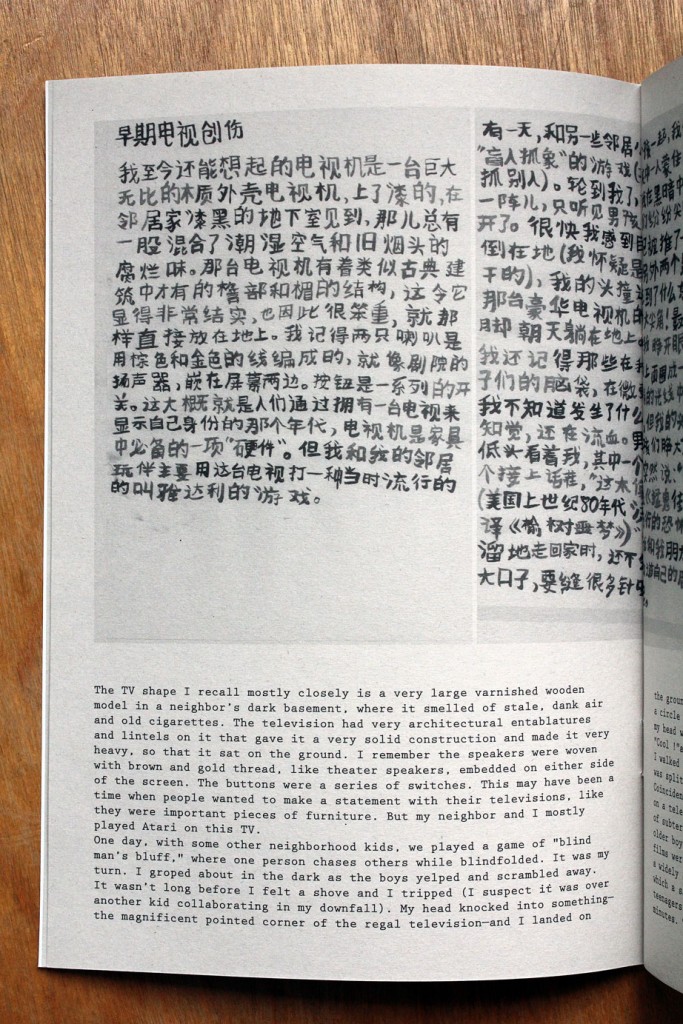 早期电视创伤
我至今还能想起的电视机是一台巨大
无比的木质外壳电视机,上了漆的,在
邻居家漆黑的地下室见到,那儿总有
一股混合了潮湿空气和旧烟头的
腐烂味。那台电视机有着类似古典建
筑中才有的檐部和楣的结构,这令它
显得非常结实,也因此很笨重,就那
样直接放在地上。我记得两只喇叭是
用棕色和金色的线编成的,就像剧院的
扬声器,嵌在屏幕两边。按钮是一系列的开
关。这大概就是人们通过拥有一台电视来
显示自己身份的那个年代,电视机是家具
中必备的一项"硬件"。但我和我的邻居
玩伴主要用这台电视打一种当时流行的
的叫雅达利的游戏。
有一天,和另一些邻居
"盲人抓象"的游戏(
抓别人)。轮到我了,
一阵儿,只听见男孩
开了。很快我感到
倒在地(我怀疑是
干的),我的头撞
那台豪华电视机的
脚朝天躺在地上
我还记得那些在
子们的脑袋,在微
我不知道发生了什么
知觉,还在流血。男
低头看着我,其中一个
个接上话茬,"这太
(美国上世纪80年代
译《榆树噩梦》)"
溜地走回家时,还不
大口子,要缝很多针
The TV shape I recall mostly closely is a very large varnished wooden
model in a neighbor's dark basement, where it smelled of stale, dank air
and old cigarettes. The television had very architectural entablatures
and lintels on it that gave it a very solid construction and made it very
heavy, so that it sat on the ground. I remember the speakers were woven
with brown and gold thread, like theater speakers, embedded on either side
of the screen. The buttons were a series of switches. This may have been a
time when people wanted to make a statement with their televisions, like
they were important pieces of furniture. But my neighbor and I mostly
played Atari on this TV.
One day, with some other neighborhood kids, we played a game of "blind
man's bluff," where one person chases others while blindfolded. It was my
turn. I groped about in the dark as the boys yelped and scrambled away.
It wasn't long before I felt a shove and I tripped (I suspect it was over
another kid collaborating in my downfall). My head knocked into something—
the magnificent pointed corner of the regal television—and I landed on
the groun
a circle
my head w
"Cool !"
I walked
was split
Coinciden
on a tele
of subter
older boy
films wer
a widely
which a
teenagers
minutes.